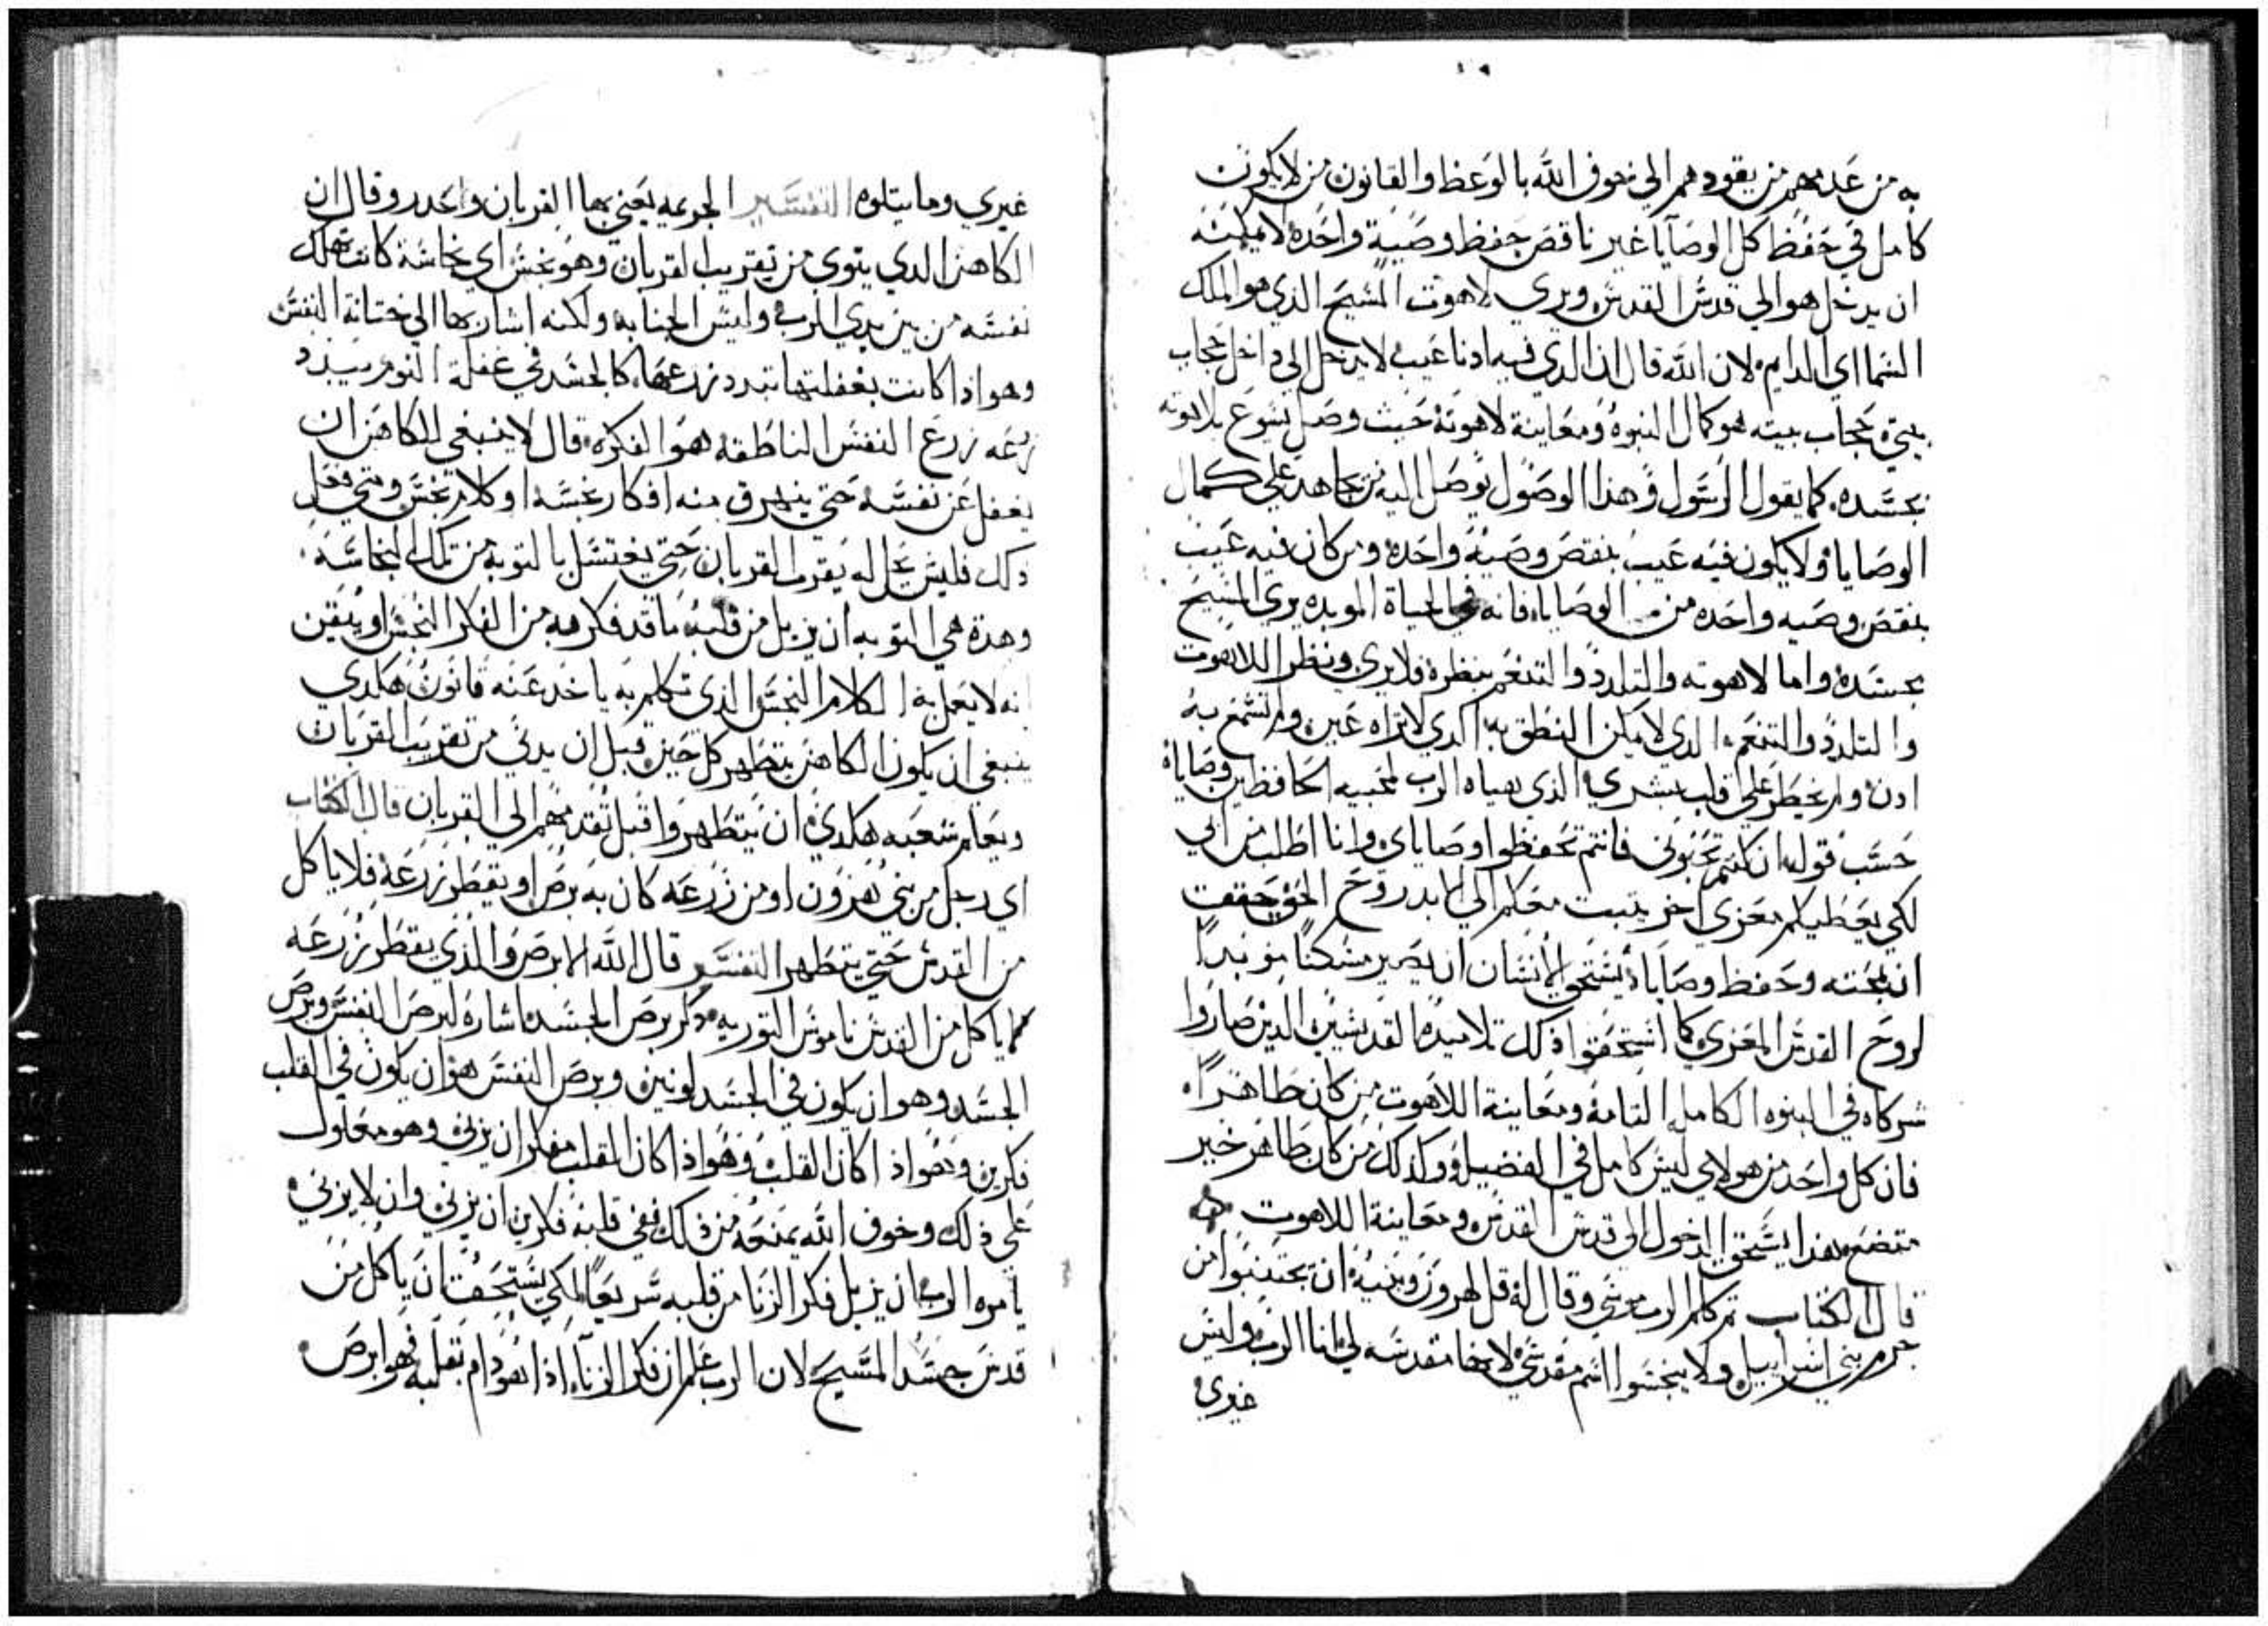 به من عدمهم من يقودهم الي خوف الله بالوعظ والقانون من لا يكون
كامل في حفظ كل الوصايا غير ناقص حفظ وصية واحده لا يمكنه
ان يدخل هو الي قدس القدس ويري لاهوت المسيح الذي هو الملك
السما اي الدايم لان الله قال ان الدي فيه ادنا عيب لا يدخل الي داخل حجاب
بيتي حجاب بيته هو كمال النبوه ومعاينة لاهوته حيث وصل يسوع بلاهوته
بجسده كما يقول الرسول وهذا الوصول يوصل اليه من يجاهد علي كمال
الوصايا ولا يكون فيه عيب بنقص وصية واحده ومن كان فيه عيب
بنقص وصيه واحده من الوصايا فانه في الحياة الموبده يري المسيح
بجسده واما لاهوته والتلدد والتنعم بنظره فلا يري ونظر اللاهوت
والتلدد والتنعم الدي لا يمكن النطق به الدي لا تراه عين ولم تسمع به
ادن ولم يخطر علي قلب بشري الذي هياه الرب لمحبيه الحافظين وصاياه
حسب قوله ان كنتم تحبوني فانتم تحفظوا وصاياي وانا اطلب من ابي
لكي يعطيكم معزي اخر يثبت معكم الي الابد روح الحق حققت
ان بمحبته وحفظ وصاياه يستحق الانسان ان يصير مسكنا موبدا
لروح القدس المعزي كما استحقوا ذلك تلاميده القديسين الدين صاروا
شركاه في البنوه الكامله التامة ومعاينة اللاهوت من كان طاهرا
فان كل واحد من هولاي ليس كامل في الفضيله وكذلك من كان طاهر خير
متضع بهذا يستحق الدخول الي قدس القدس ومعاينة اللاهوت
قال الكتاب تم كلم الرب موسي وقال له قل لهرون وبنيه ان يجتنبوا من
حرم بني اسراييل ولا ينجسوا اسم مقدسي لانها مقدسه لي انا الرب وليس
غيري
غيري وما يتلوه التفسير الجرعه يعني بها القربان واعدد وقال ان
الكاهن الدي يتوي من تقريب القربان وهو نجس اي نجاسة كانت تهلك
نفسه من بين يدي الرب وليس الجنابه ولكنه اشار بها الي ختانة النفس
وهو اذا كانت بغفلتها تبدد زرعها كالجسد في غفلة النوم يبدد
زرعه زرع النفس الناطقه هو الفكره قال لا ينبغي للكاهن ان
يغفل عن نفسه حتي ينهرق منه افكار نجسه او كلام نجس ومتي فعل
دلك فليس يحل له يقرب القربان حتي يغتسل بالتوبه من تلك النجاسه
وهدة هي التوبه ان يزيل من قلبه ما قد فكر به من الفكر النجس او يتقين
انه لا يعمل به الكلام النجس الذي تكلم به ياخد عنه قانون هكدي
ينبغي ان يكون الكاهن يتطهر كل حين قبل ان يدني من تقريب القربان
ويعلم شعبه هكدي ان يتطهروا قبل تقدمهم الي القربان قال الكتاب
اي رجل من بني هرون او من زرعه كان به برص او يقطر زرعه فلا ياكل
من القدس حتي يتطهر التفسير قال الله الابرص والذي يقطر زرعه
لا ياكل من القدس ناموس التوريه دكر برص الجسد اشاره لبرص النفس وبرص
الجسد وهو ان يكون في الجسد لونين وبرص النفس هو ان يكون في القلب
فكرين وهو اذا كان القلب وهو اذا كان القلب مفكر ان يزني وهو معاول
علي ذلك وخوف الله يمنعه من ذلك ففي قلبه فكرين ان يزني وان لا يزني
يامره الرب ان يزيل فكر الزنا من قلبه سريعا لكي يستحق ان ياكل من
قدس جسد المسيح لان الرب علم ان فكر الزنا اذا هو دام بقلبه فهو ابرص